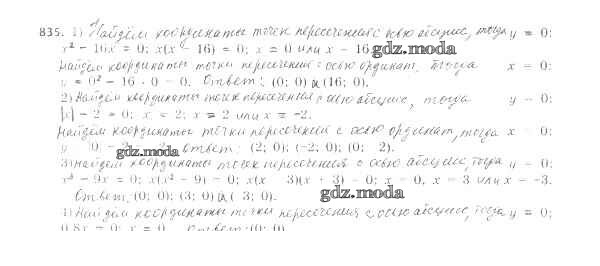 835. 1) Найдём координаты точек пересечения с осью абсцисс, тогда y = 0:
x² - 16x = 0; x(x - 16) = 0; x = 0 или x = 16
gdz.moda
Найдём координаты точки пересечения с осью ординат, тогда x = 0:
y = 0² - 16 · 0 = 0. Ответ: (0; 0) и (16; 0).
2) Найдём координаты точек пересечения с осью абсцисс, тогда y = 0:
|x| - 2 = 0; x = 2; x = 2 или x = -2.
Найдём координаты точки пересечения с осью ординат, тогда x = 0:
gdz.moda Ответ: (2; 0); (-2; 0); (0; 2).
3) Найдём координаты точек пересечения с осью абсцисс, тогда y = 0:
x³ - 9x = 0; x(x² - 9) = 0; x(x 3)(x + 3) = 0; x = 0, x = 3 или x = -3.
Ответ: (0; 0); (3; 0) и ( 3; 0).
gdz.moda
4) Найдём координаты точки пересечения с осью абсцисс, тогда y = 0;
0,8x = 0; x = 0 Ответ: (0; 0)